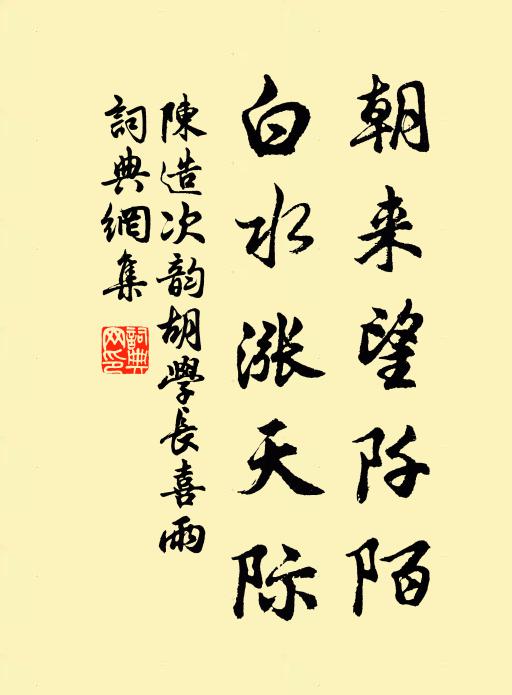 朝来望阡陌
白水涨天际
陳造次韵胡學長喜雨
詞典網集
詞典网印